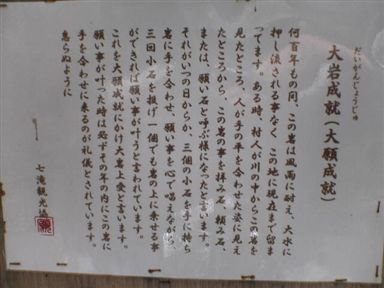 だいがんじょうじゅ
大岩成就(大願成就)
何百年もの間、この岩は風雨に耐え、大水に
押し流される事なく、この地に現在まで留ま
ってます。ある時、村人が川の中からこの岩を
見たところ、人が手の平を合わせた姿に見え
たところから、この岩の事を拝み石、頼み石、
または、願い石と呼ぶ様になったと言います。
それがいつの日からか、三個の小石を手に持ち
岩に手を合わせ、願い事を心で唱えながら、
三回小石を投げ一個でも岩の上に乗せる事
ができれば願い事が叶うと言われています。
これを大願成就にかけ大岩上受と言います。
願い事が叶った時は必ずその年の内にこの岩に
手を合わせに来るのが礼儀とされています。
怠らぬように
七滝観光協